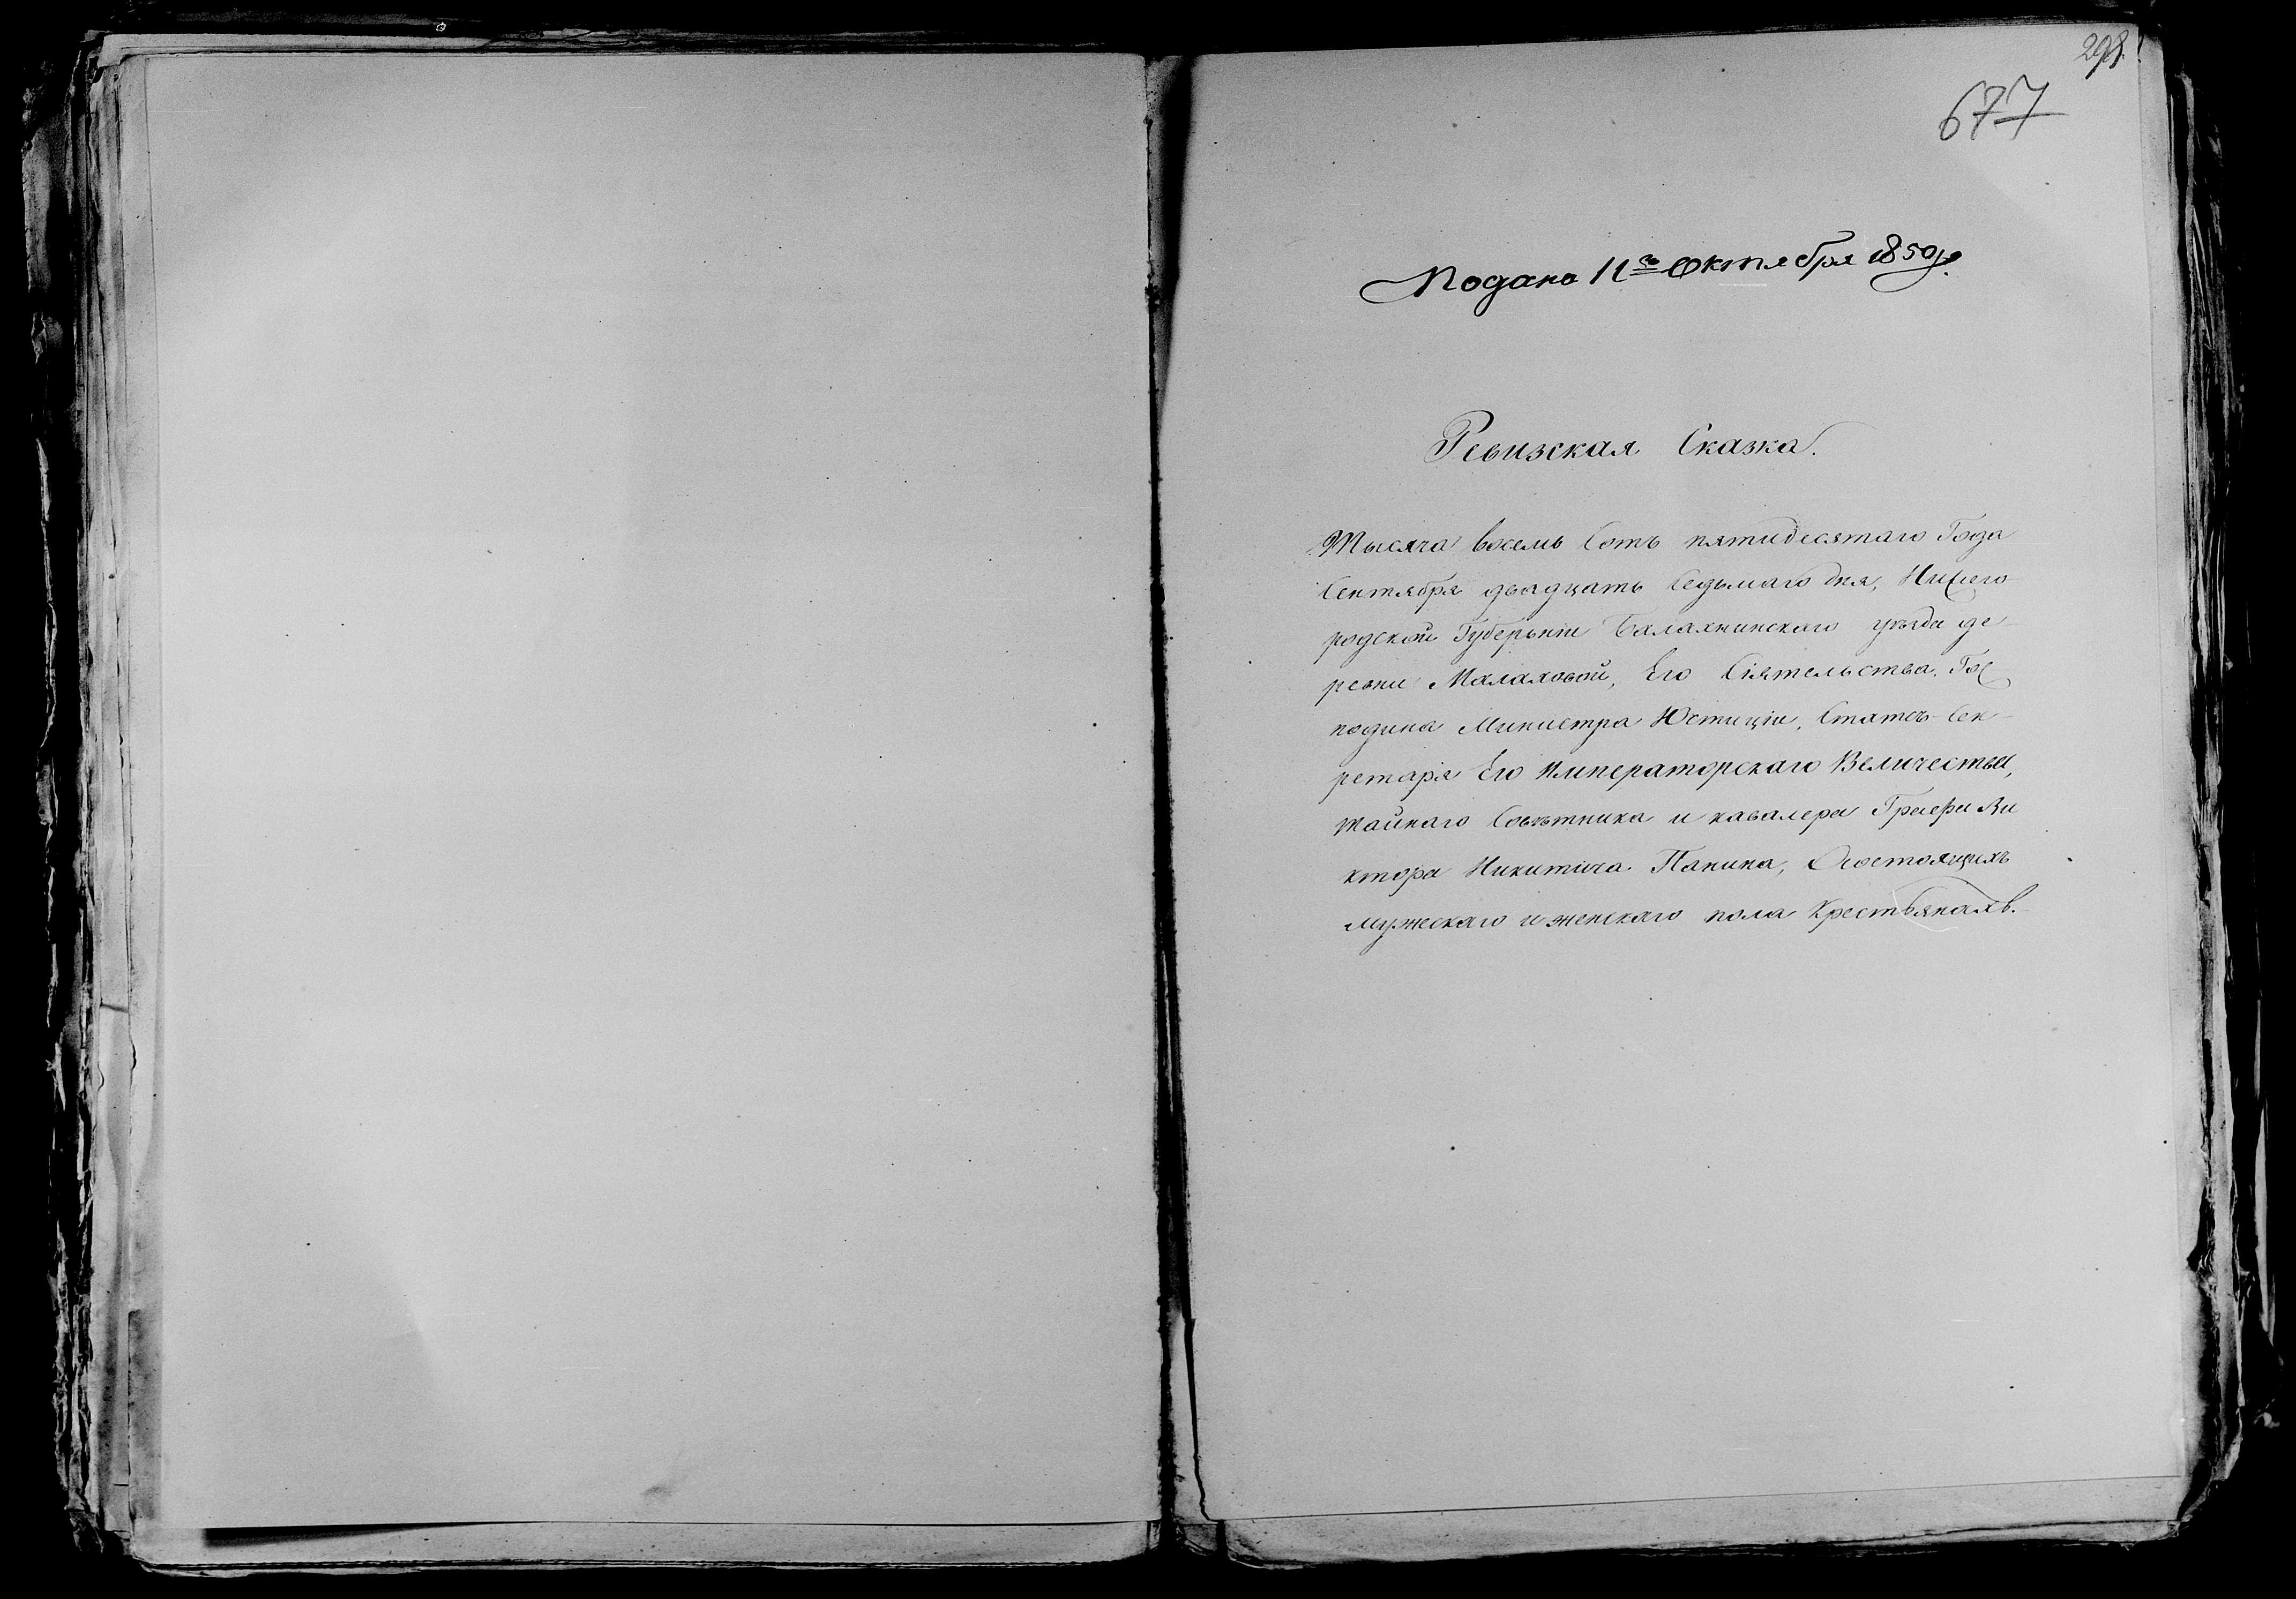 677
Подано 11го Октября 1850 г.
Ревизская Сказка.
Тысяча восемь Сотъ пятидесятаго Года
Сентября двадцать Седьмаго дня, Нижего
родской Губерніи Балахнинскаго уѣзда де
ревни Малаховой, Его Сіятельства, Гос
подина Министра Юстиціи, Статсъ-Сек-
ретаря Его Императорскаго Величества,
тайнаго Совѣтника и кавалера Графа Ви
ктора Никитича Панина, Осостоящихъ
мужескаго и женскаго пола Крестьянахъ.